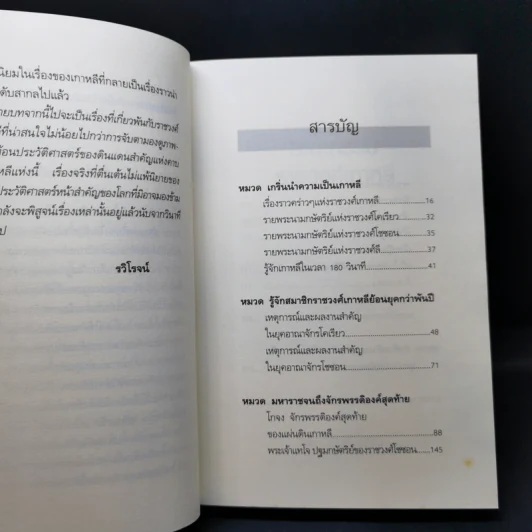 นิยมในเรื่องของเกาหลีที่กลายเป็นเรื่องราวน่า
ดับสากลไปแล้ว
ายบทจากนี้ไปจะเป็นเรื่องที่เกี่ยวพันกับราชวงศ์
ที่น่าสนใจไม่น้อยไปกว่าการจับตามองดูภาพ-
ย้อนประวัติศาสตร์ของดินแดนสำคัญแห่งคาบ
หลีแห่งนี้ เรื่องจริงที่ตื่นเต้นไม่แพ้นิยายของ
ประวัติศาสตร์หน้าสำคัญของโลกที่มิอาจมองข้าม
ำลังจะพิสูจน์เรื่องเหล่านั้นอยู่แล้วนับจากวินาที
ป
รวิโรจน์
สารบัญ
หมวด เกริ่นนำความเป็นเกาหลี
เรื่องราวคร่าวๆแห่งราชวงศ์เกาหลี.....16
รายพระนามกษัตริย์แห่งราชวงศ์โครียว.....32
รายพระนามกษัตริย์แห่งราชวงศ์โชซอน.....35
รายพระนามกษัตริย์แห่งราชวงศ์ลี.....37
รู้จักเกาหลีในเวลา 180 วินาที.....41
หมวด รู้จักสมาชิกราชวงศ์เกาหลีย้อนยุคกว่าพันปี
เหตุการณ์และผลงานสำคัญ
ในยุคอาณาจักรโครียว.....48
เหตุการณ์และผลงานสำคัญ
ในยุคอาณาจักรโชซอน.....71
หมวด มหาราชจนถึงจักรพรรดิองค์สุดท้าย
โกจง จักรพรรดิองค์สุดท้าย
ของแผ่นดินเกาหลี.....88
พระเจ้าแทโจ ปฐมกษัตริย์ของราชวงศ์โชซอน.....145